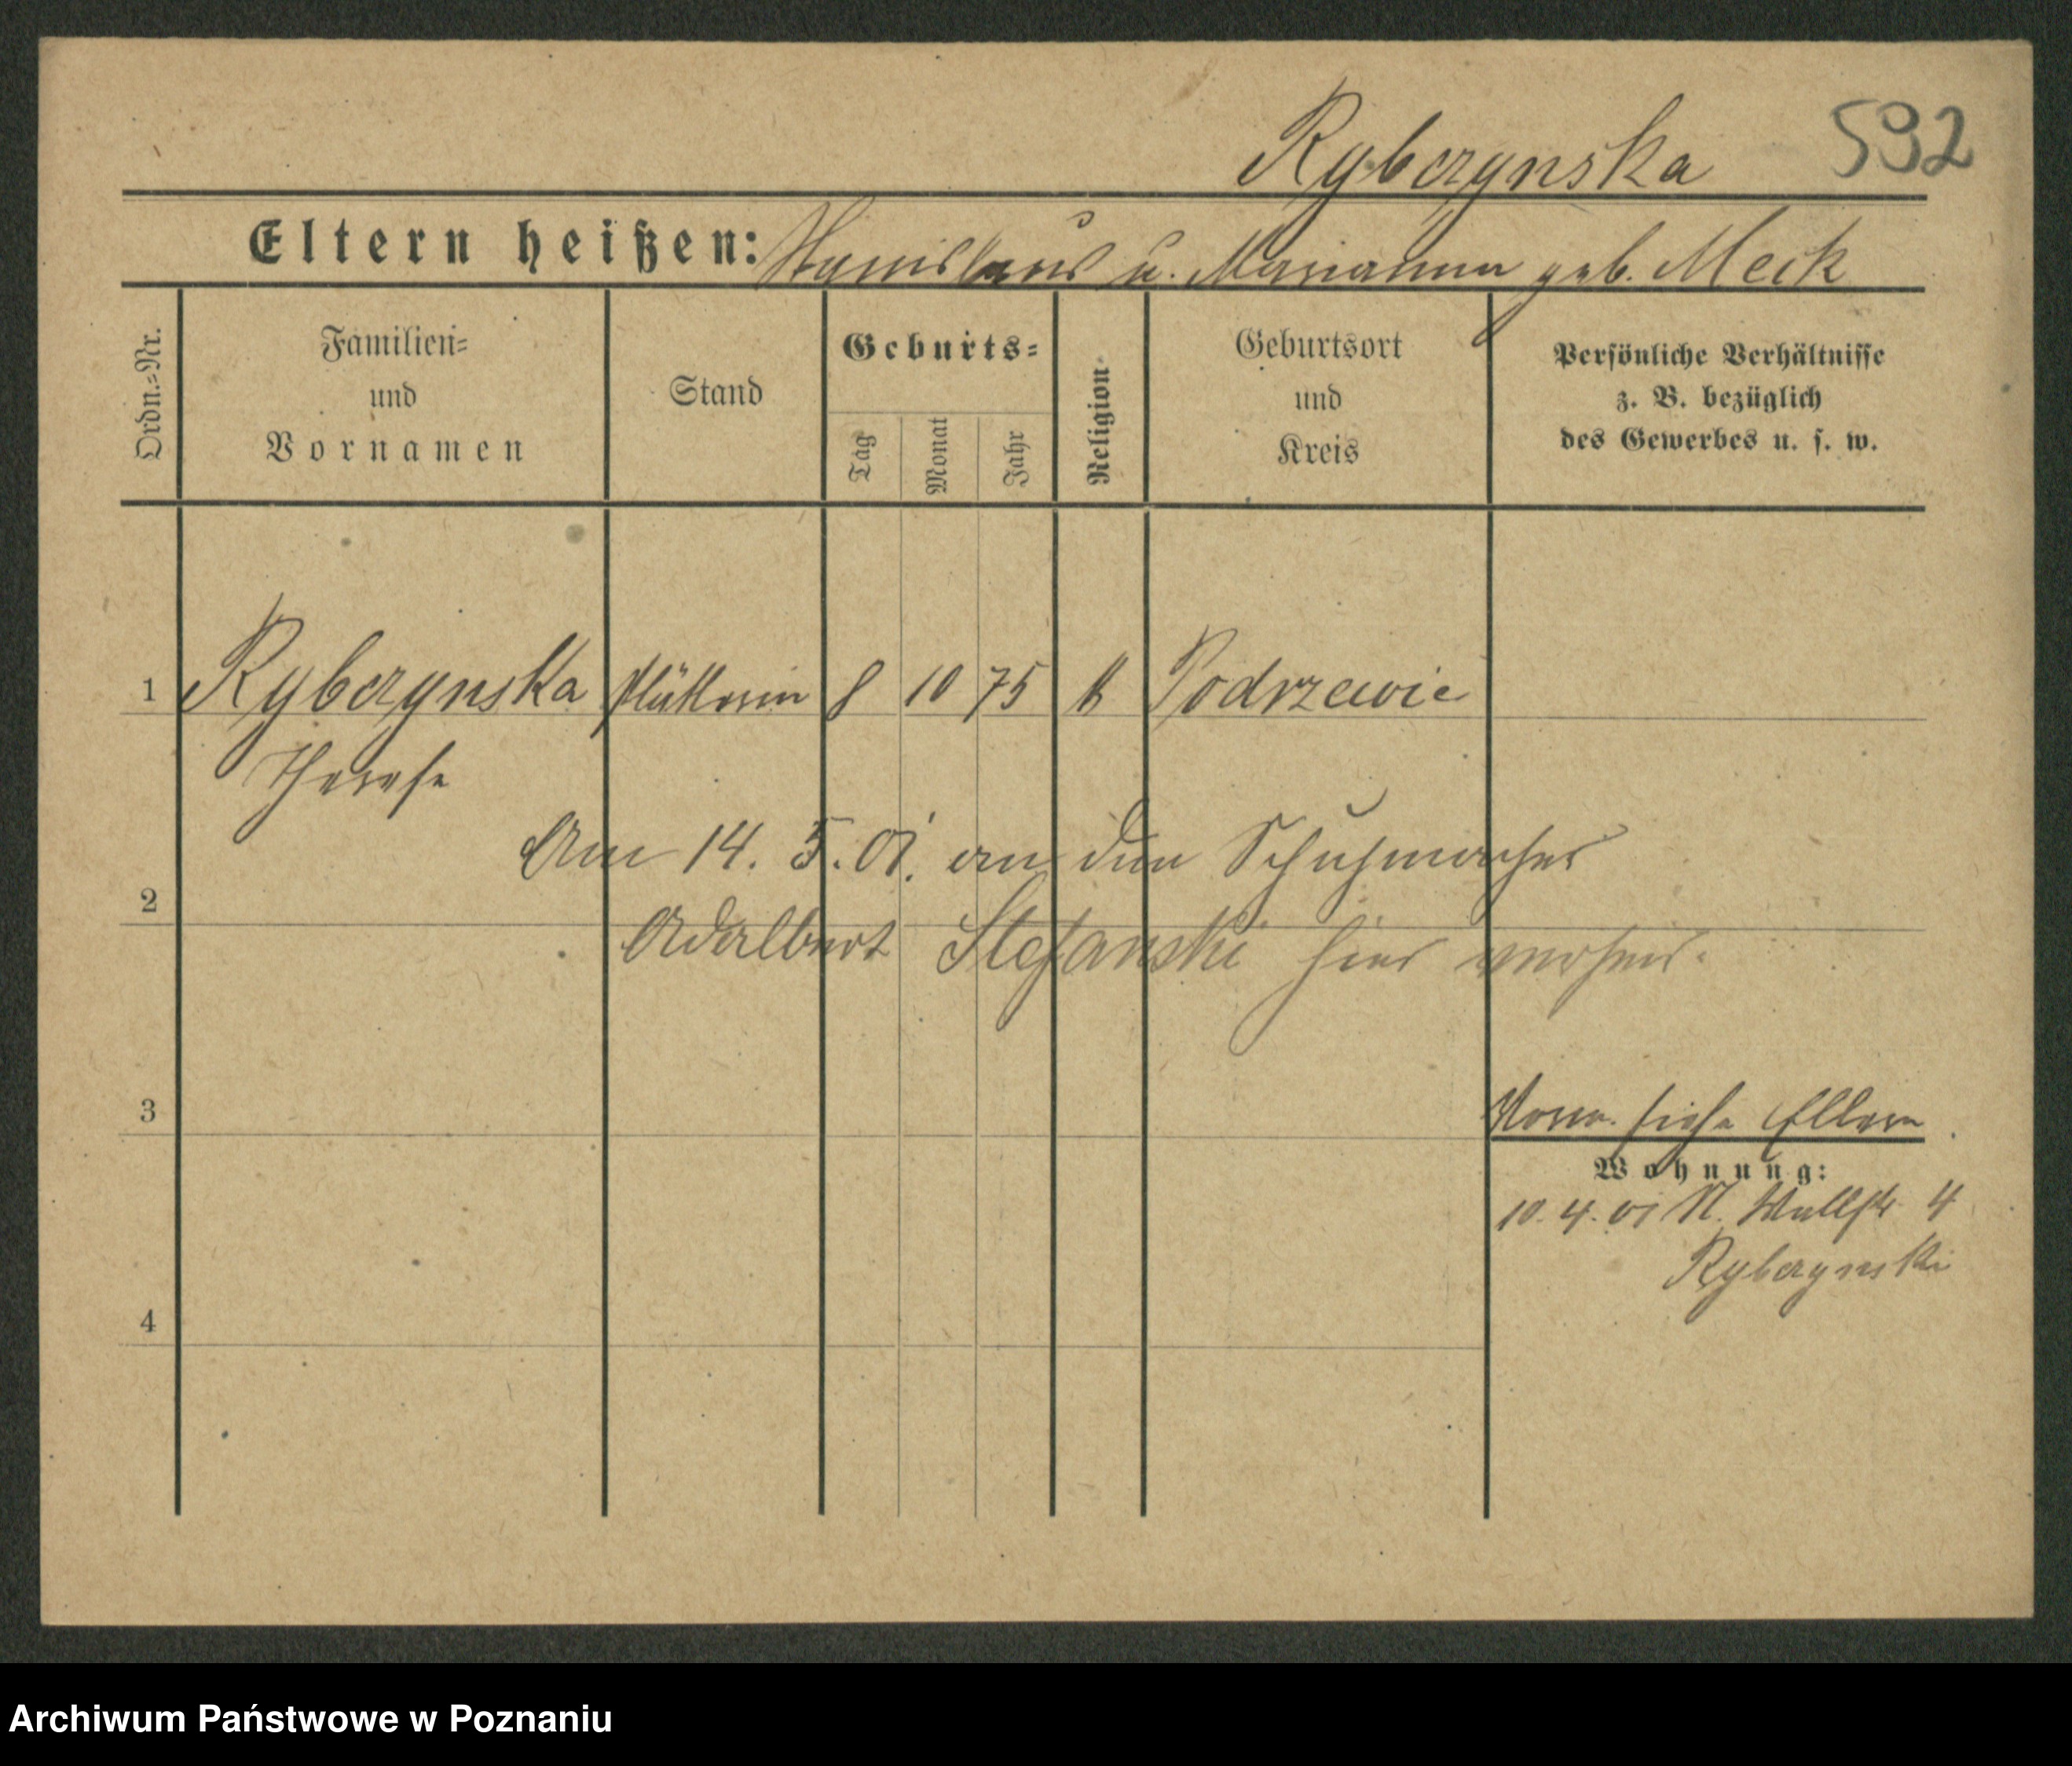 Rybczynska 592
Eltern heißen: Stanislaus u. Marianna geb. Meck
Ordn.=Nr.
Familien=
und
Vornamen
Stand
Geburts=
Tag
Monat
Jahr
Religion
Geburtsort
und
Kreis
Persönliche Verhältnisse
z. B. bezüglich
des Gewerbes u. s. w.
1 Rybczynska 8 10 75 k Podrzewie
Therese
Am 14. 5. 01. an den Schuhmacher
2
Adalbert Stefanski hier verheir.
3
siehe Eltern
Wohnung:
10. 4. 01 N. Wallstr. 4
Rybczynski
4
Archiwum Państwowe w Poznaniu